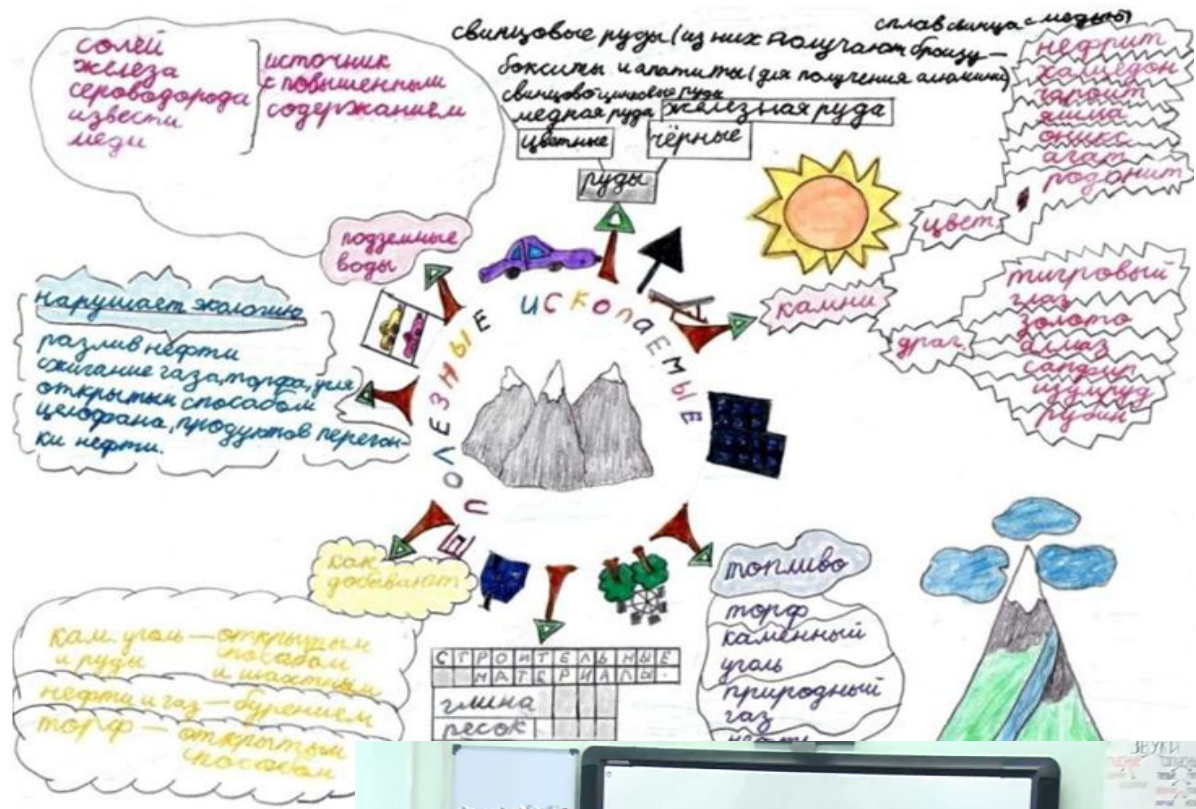 солей
железа
сероводорода
извести
меди
источник
с повышенным
содержанием
подземные
воды
сплав свинца с медью)
свинцовые руды (из них получают бронзу —
бокситы и апатиты (для получения алюминия)
свинцово-цинковые руды
медная руда железная руда
цветные чёрные
руды
нефрит
халцедон
чароит
яшма
оникс
агат
родонит
цвет.
камни
драг.
тигровый
глаз
золото
алмаз
сапфир
изумруд
рубин
нарушает экологию
разлив нефти
сжигание газа, торфа, угля
открытым способом
целофана, продуктов перегон-
ки нефти.
ПОЛЕЗНЫЕ ИСКОПАЕМЫЕ
как
добывают
кам. уголь — открытым
и руды способом
и шахтным
нефть и газ — бурением
торф — открытым
способом
СТРОИТЕЛЬНЫЕ
МАТЕРИАЛЫ.
глина
песок
топливо
торф
каменный
уголь
природный
газ
нефть
ЗВУКИ